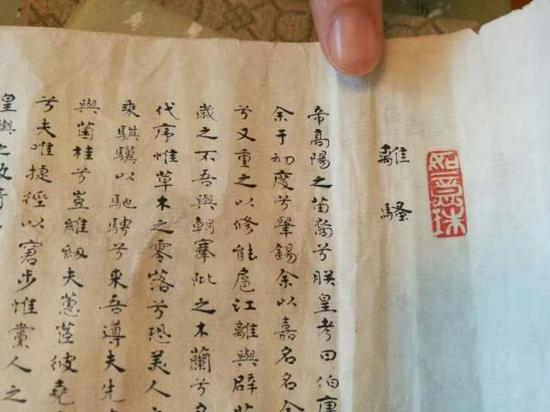 如意珠
離騷
帝高陽之苗裔兮朕皇考曰伯庸
余于初度兮肇錫余以嘉名名余
兮又重之以修能扈江離與辟芷
歲之不吾與朝搴阰之木蘭兮
代序惟草木之零落兮恐美人之
乘騏驥以馳騁兮来吾導夫先
與菌桂兮豈維紉夫蕙茝彼堯
兮夫唯捷徑以窘步惟黨人之
皇輿之敗績